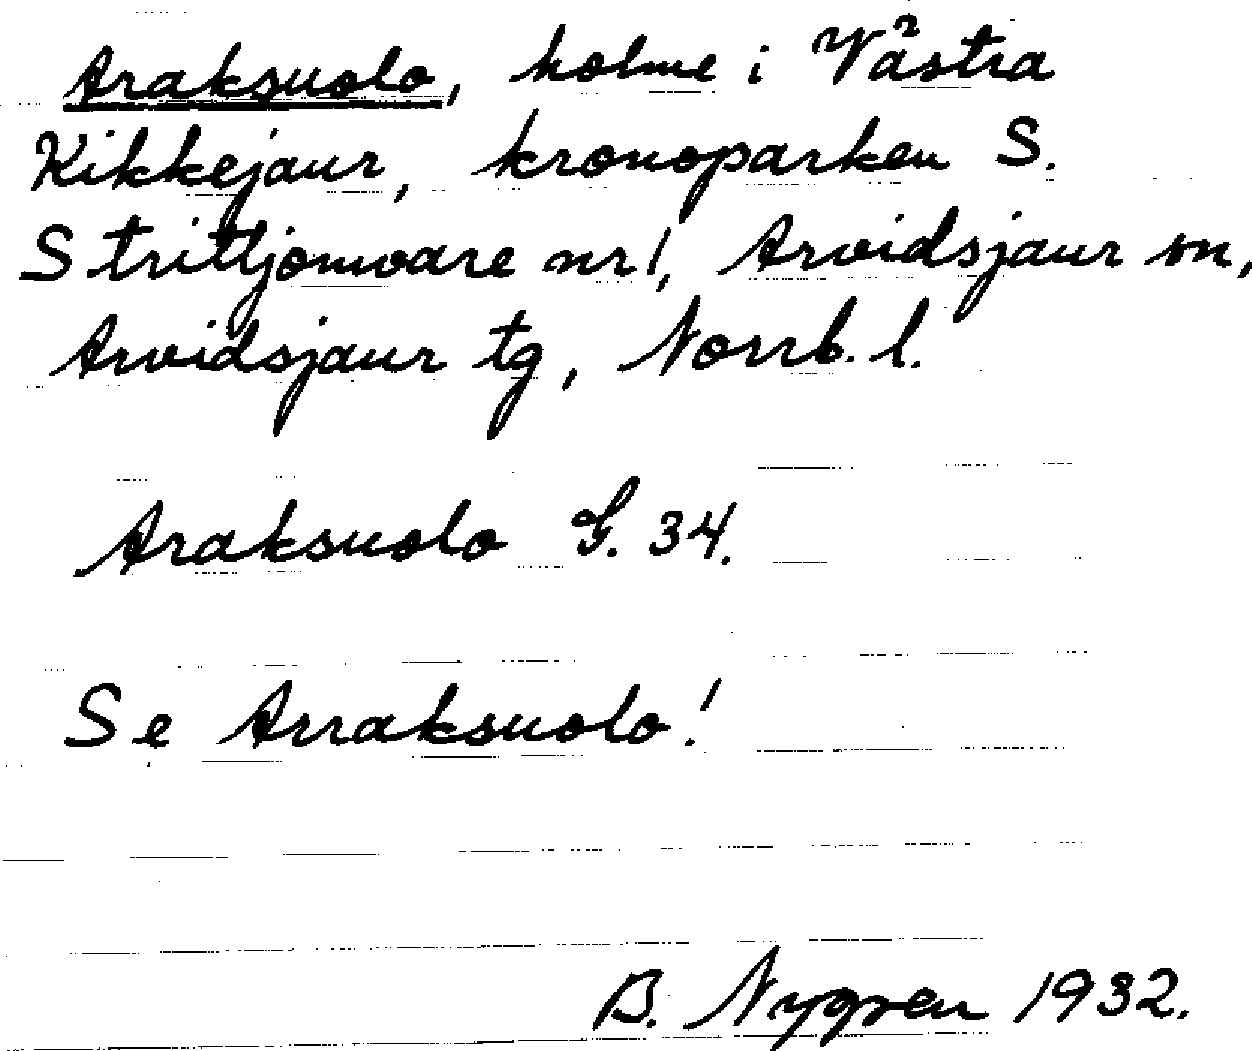 Araksuolo, holme i Västra
Kikkejaur, kronoparken S.
Strittjomvare nr 1, Arvidsjaur sn,
Arvidsjaur tg, Norrb. l.
Araksuolo G. 34.
Se Arraksuolo!
B. Nygren 1932.